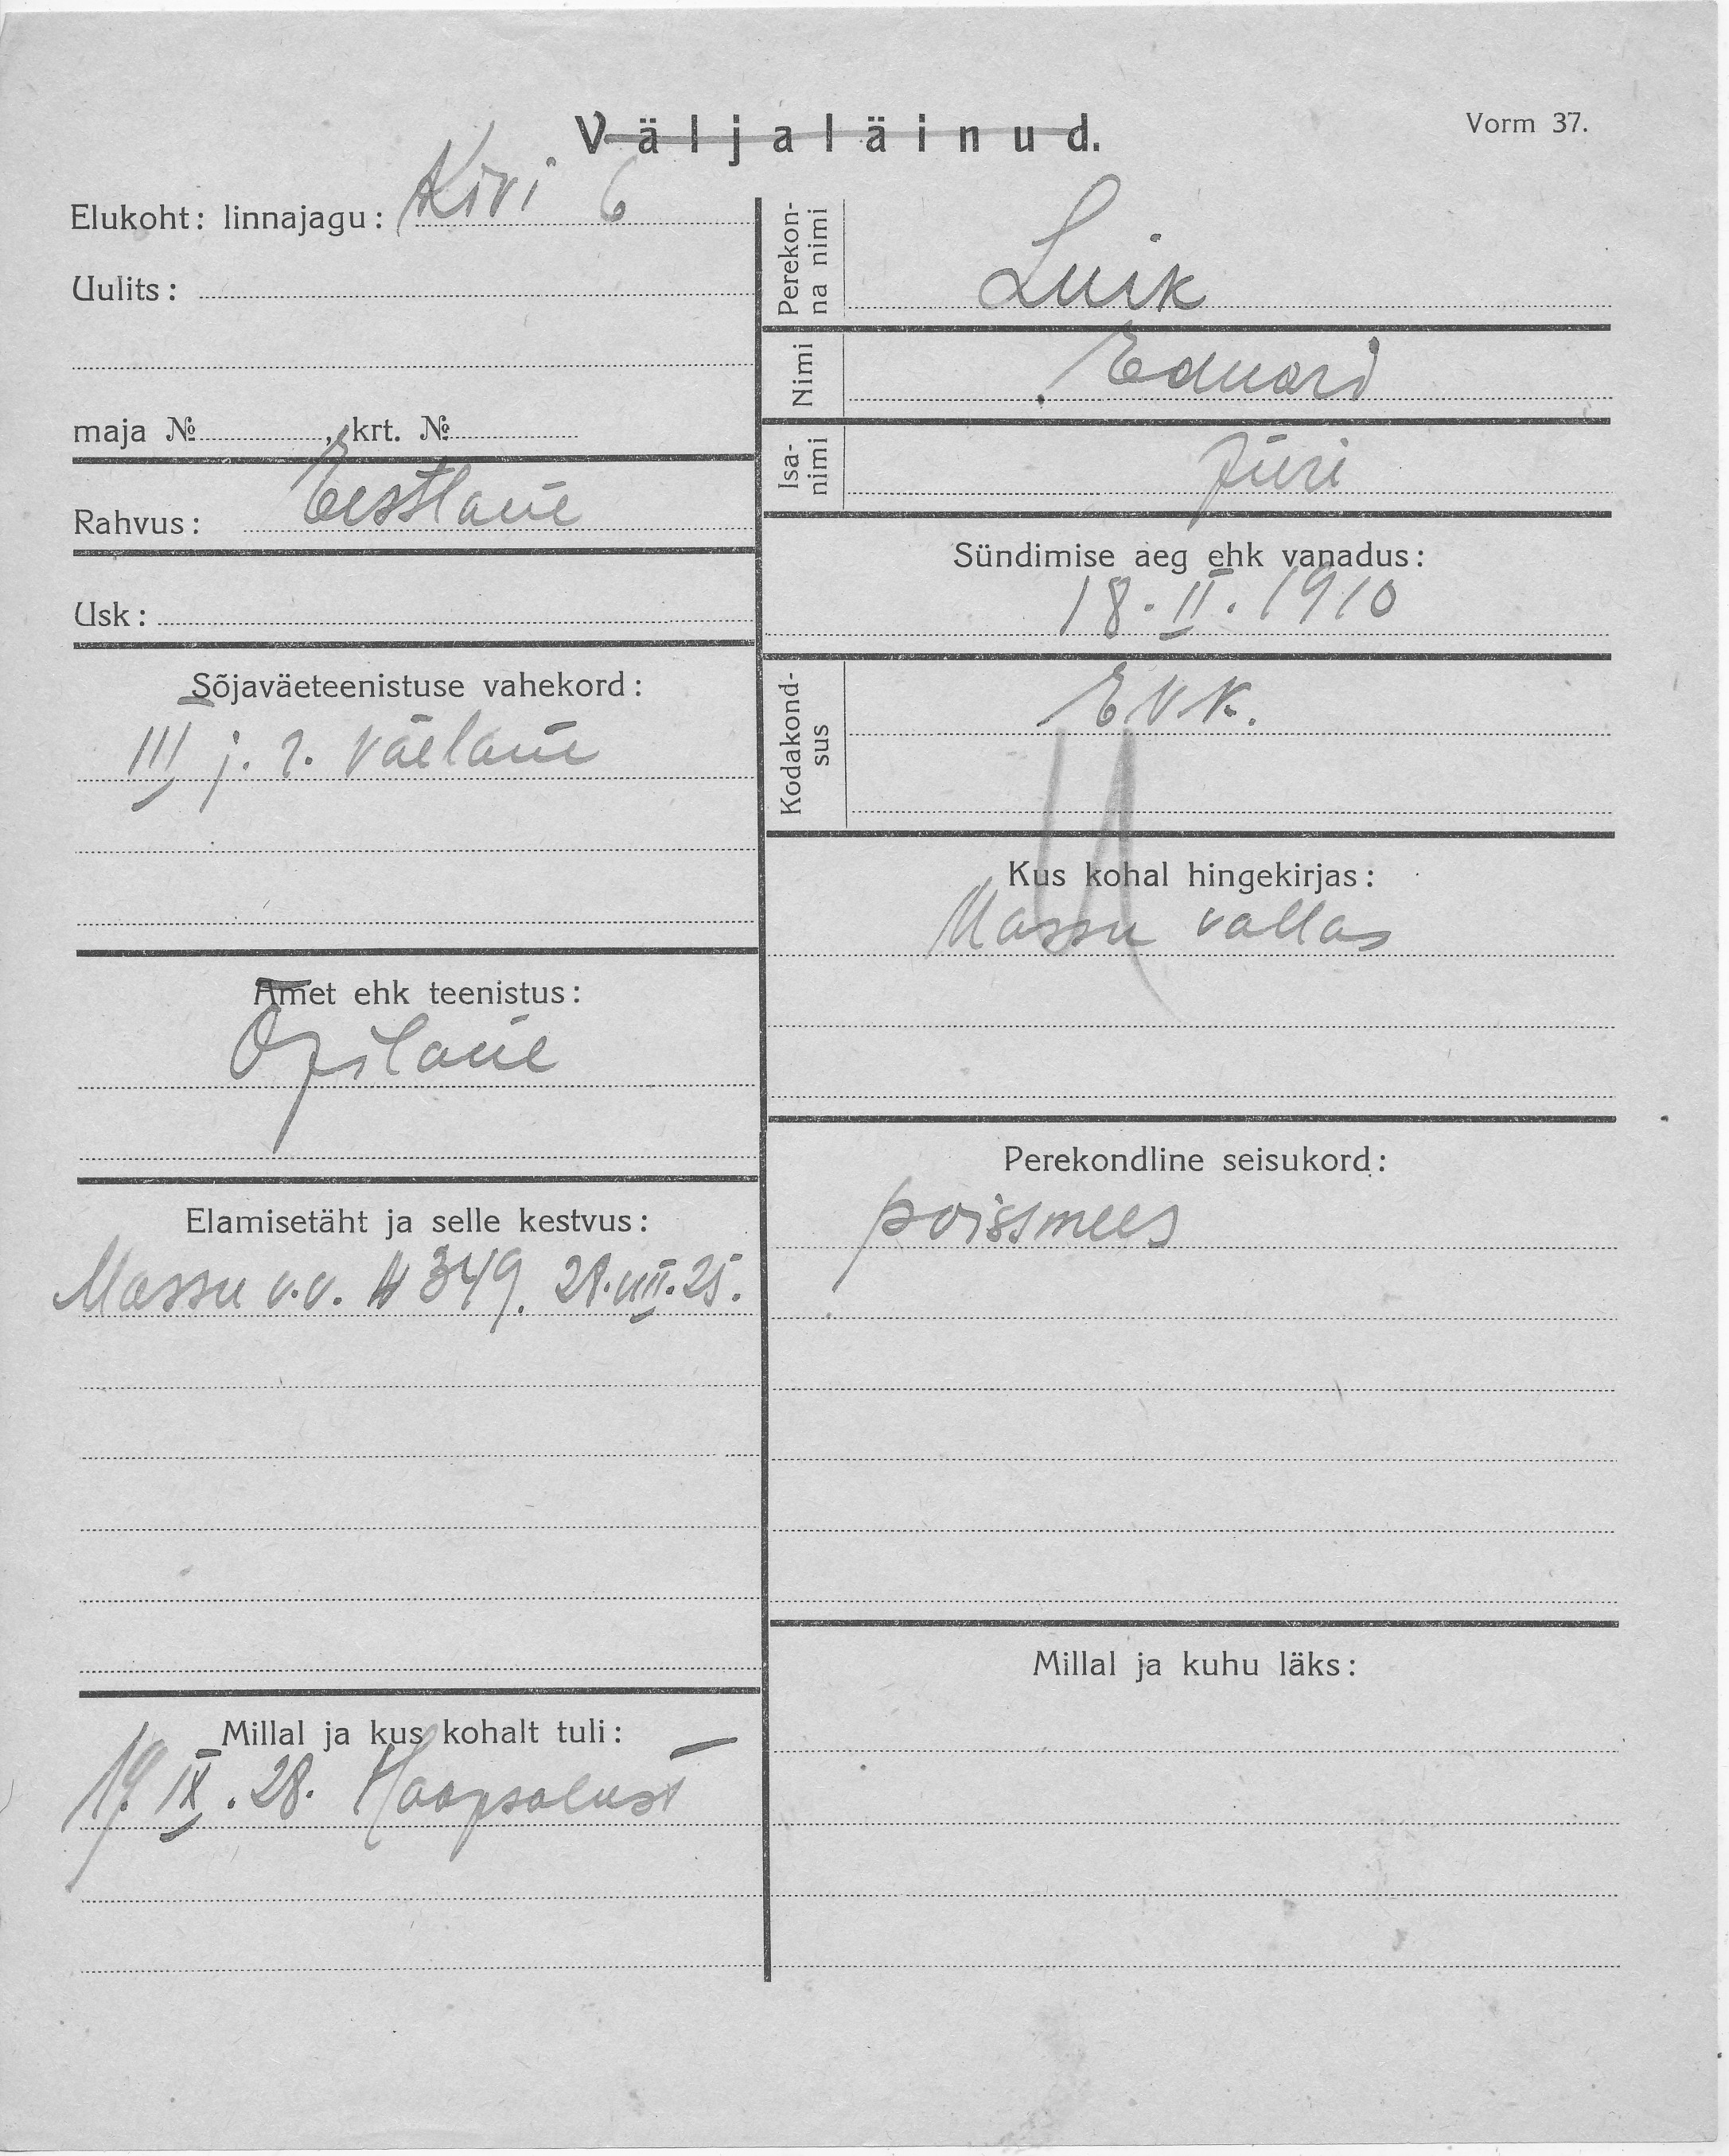 Väljaläinud.
Vorm 37.
Elukoht: linnajagu: Kivi 6
Uulits:
maja № , krt. №
Rahvus: Eestlane
Usk:
Sõjaväeteenistuse vahekord:
III j. r. väelane
Amet ehk teenistus:
Õpilane
Elamisetäht ja selle kestvus:
Massu v.v. № 349. 28.VIII.25.
Millal ja kus kohalt tuli:
19. IX. 28. Haapsalust
Perekon-
na nimi
Luik
Nimi
Eduard
Isa-
nimi
Jüri
Sündimise aeg ehk vanadus:
18. II. 1910
Kodakond-
sus
E.V.K.
Kus kohal hingekirjas:
Massu vallas
Perekondline seisukord:
poissmees
Millal ja kuhu läks: